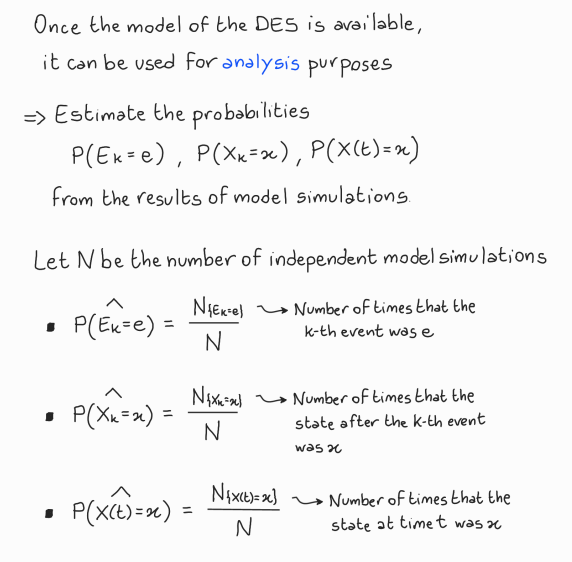 Once the model of the DES is available,
it can be used for analysis purposes
⇒ Estimate the probabilities
P(Eₖ=e), P(Xₖ=x), P(X(t)=x)
from the results of model simulations.
Let N be the number of independent model simulations
▪ P(Eₖ=e)^ = N{Eₖ=e} / N → Number of times that the
k-th event was e
▪ P(Xₖ=x)^ = N{Xₖ=x} / N → Number of times that the
state after the k-th event
was x
▪ P(X(t)=x)^ = N{X(t)=x} / N → Number of times that the
state at time t was x